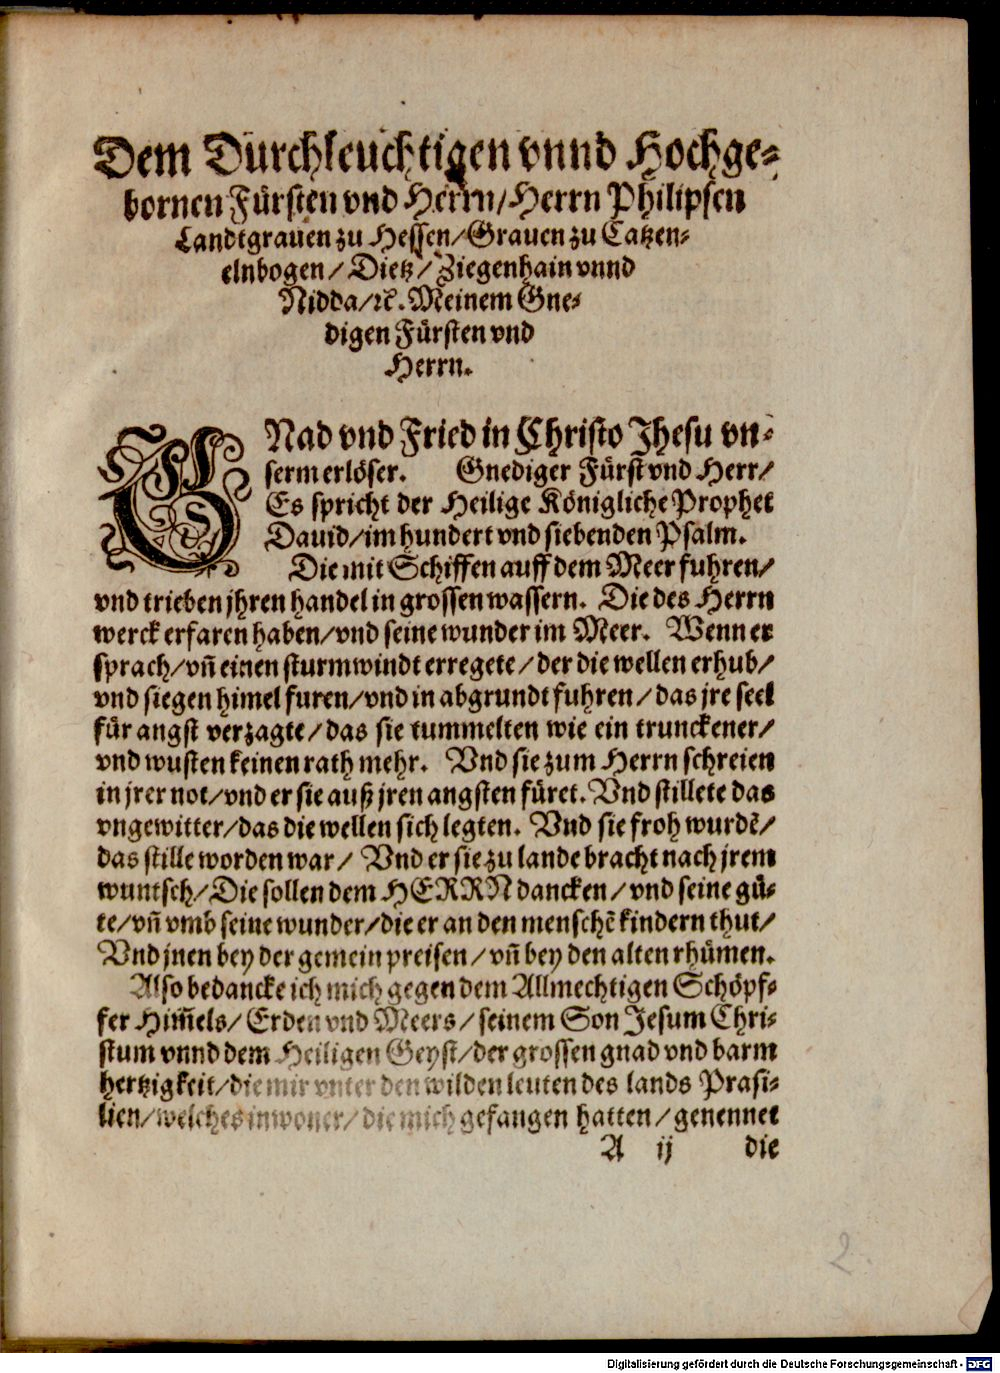 Dem Durchleuchtigen vnnd Hochge-
bornen Fürsten vnd Herrn/Herrn Philipsen
Landtgrauen zu Hessen/Grauen zu Catzen-
elnbogen/ Dietz/ Ziegenhain vnnd
Nidda/ ꝛc. Meinem Gne-
digen Fürsten vnd
Herrn.
GNad vnd Fried in Christo Jhesu vn-
serm erlöser. Gnediger Fürst vnd Herr/
Es spricht der Heilige Königliche Prophet
Dauid/ im hundert vnd siebenden Psalm.
Die mit Schiffen auff dem Meer fuhren/
vnd trieben jhren handel in grossen wassern. Die des Herrn
werck erfaren haben/vnd seine wunder im Meer. Wenn er
sprach/vñ einen sturmwindt erregete/ der die wellen erhub/
vnd sie gen himel furen/vnd in abgrundt fuhren/ das jre seel
für angst verzagte/ das sie tummelten wie ein trunckener/
vnd wusten keinen rath mehr. Vnd sie zum Herrn schreien
in jrer not/vnd er sie auß jren angsten füret. Vnd stillete das
vngewitter/das die wellen sich legten. Vnd sie froh wurdẽ/
das stille worden war/ Vnd er sie zu lande bracht nach jrem
wuntsch/ Die sollen dem HERRN dancken/ vnd seine gü-
te/vñ vmb seine wunder/die er an den menschẽ kindern thut/
Vnd jnen bey der gemein preisen/ vñ bey den alten rhümen.
Also bedancke ich mich gegen dem Allmechtigen Schöpf-
fer Him̃els/ Erden vnd Meers/ seinem Son Jesum Chri-
stum vnnd dem Heiligen Geyst/ der grossen gnad vnd barm
hertzigkeit/ die mir vnter den wilden leuten des lands Prasi-
lien/ welches inwoner/ die mich gefangen hatten/ genennet
A ij die
2.
Digitalisierung gefördert durch die Deutsche Forschungsgemeinschaft - DFG